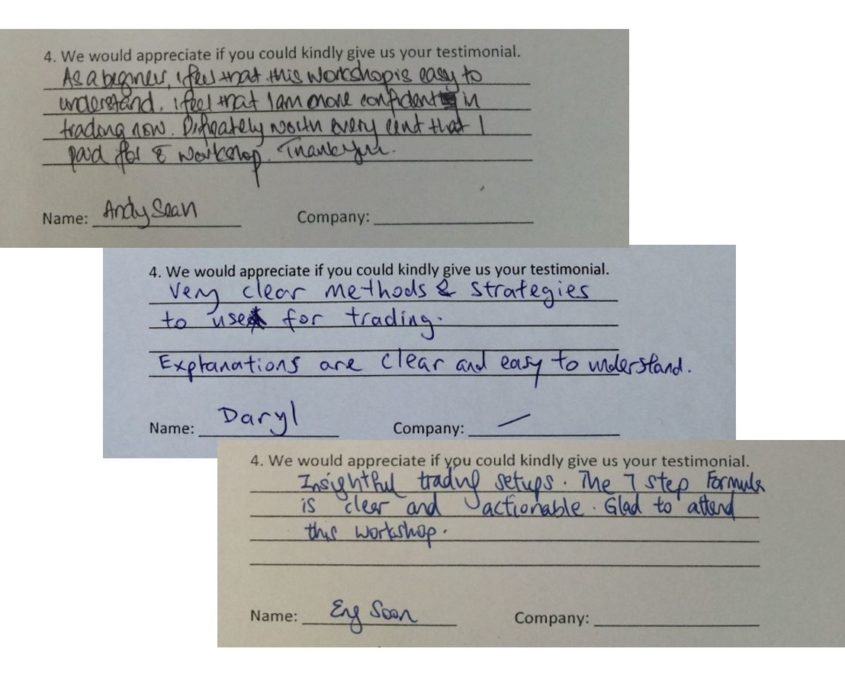 4. We would appreciate if you could kindly give us your testimonial.
As a beginner, i feel that this workshop is easy to
understand. i feel that I am more confident in
trading now. Difinately worth every cent that I
paid for & workshop. Thank you.
Name: Andy Sean
Company:
4. We would appreciate if you could kindly give us your testimonial.
Very clear methods & strategies
to use for trading.
Explanations are clear and easy to understand.
Name: Daryl
Company: —
4. We would appreciate if you could kindly give us your testimonial.
Insightful trading setups. The 7 step Formula
is clear and actionable. Glad to attend
this workshop.
Name: Eng Soon
Company: